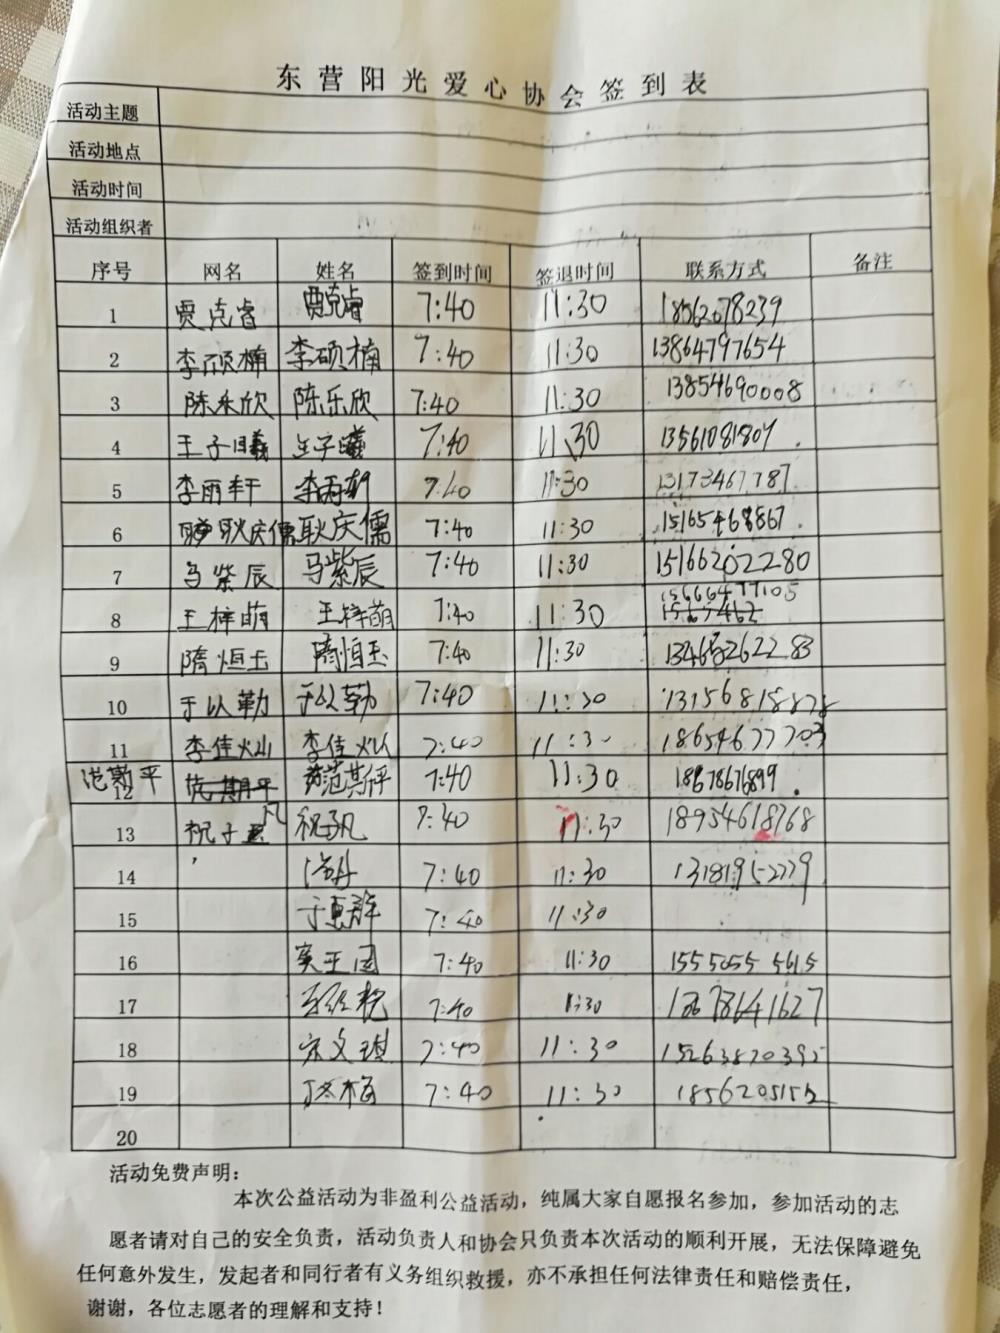 东营阳光爱心协会签到表
活动主题
活动地点
活动时间
活动组织者
序号 网名 姓名 签到时间 签退时间 联系方式 备注
1 贾克睿 贾克睿 7:40 11:30 18562078239
2 李硕楠 李硕楠 7:40 11:30 13864797654
3 陈乐欣 陈乐欣 7:40 11:30 13854690008
4 王子曦 王子曦 7:40 11:30 13561081807
5 李雨轩 李雨轩 7:40 11:30 13173467787
6 耿庆儒 耿庆儒 7:40 11:30 15165468867
7 马紫辰 马紫辰 7:40 11:30 15166202280
8 王梓萌 王梓萌 7:40 11:30 15666477105
9 隋恒玉 隋恒玉 7:40 11:30
10 于以勤 于以勤 7:40 11:30 13156818878
11 李佳灿 李佳灿 7:40 11:30 18654677703
12 7:40 11:30 18678676899
13 祝子凡 祝子凡 7:40 11:30 18954618768
14 7:40 11:30 13181952779
15 于惠群 7:40 11:30
16 7:40 11:30 15550555615
17 7:40 11:30 18678641627
18 宋文琪 7:40 11:30 15263870395
19 丁冬梅 7:40 11:30 18562051552
20
活动免费声明：
本次公益活动为非盈利公益活动，纯属大家自愿报名参加，参加活动的志
愿者请对自己的安全负责，活动负责人和协会只负责本次活动的顺利开展，无法保障避免
任何意外发生，发起者和同行者有义务组织救援，亦不承担任何法律责任和赔偿责任，
谢谢，各位志愿者的理解和支持！